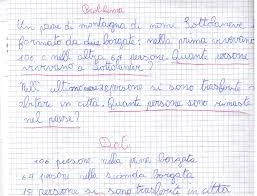 Problema
Un paese di montagna di nome Sottolaneve,
formato da due borgate: nella prima vivevano
106 e nell'altra 69 persone. Quante persone
vivevano a Sottolaneve?
Nell'ultimo persone si sono trasferite
abitare in città. Quante persone sono rimaste
nel paese?
Dati
106 persone nella prima borgata
69 persone nella seconda borgata
persone si sono trasferite in città